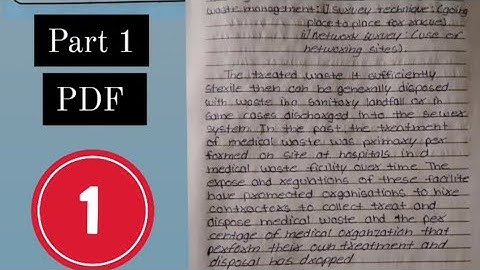 Part 1
PDF
1
waste management: i) survey technique: (going
place to place for
ii) network survey: (use of
networking sites).
The treated waste it sufficiently
sterile then can be generally disposed
with waste in a sanitary landfall or in
same cases discharged into the sewer
system. In the past, the treatment
of medical waste was primary per
formed on site at hospitals in d
medical waste ficility over time The
expose and regulations of these facilite
have promected organisations to hire
contractors to collect treat and
dispose medical waste and the per
centage of medical organization that
perform their own treatment and
disposal has dropped